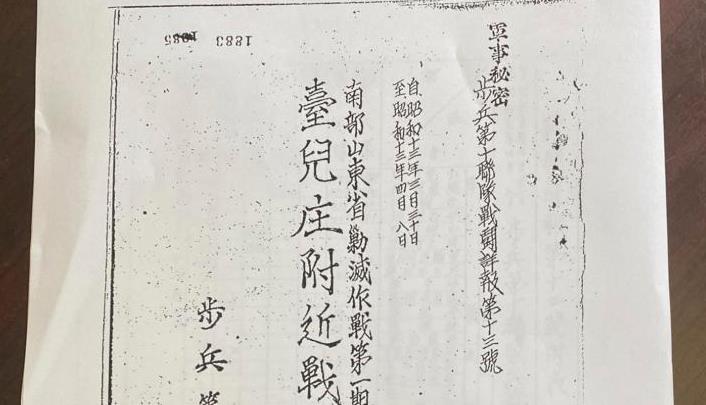 軍事秘密
步兵第十聯隊戰鬪詳報第十三號
自昭和十三年三月三十日
至昭和十三年四月八日
南部山東省勦滅作戰第一期
臺兒庄附近戰
步兵第
1883